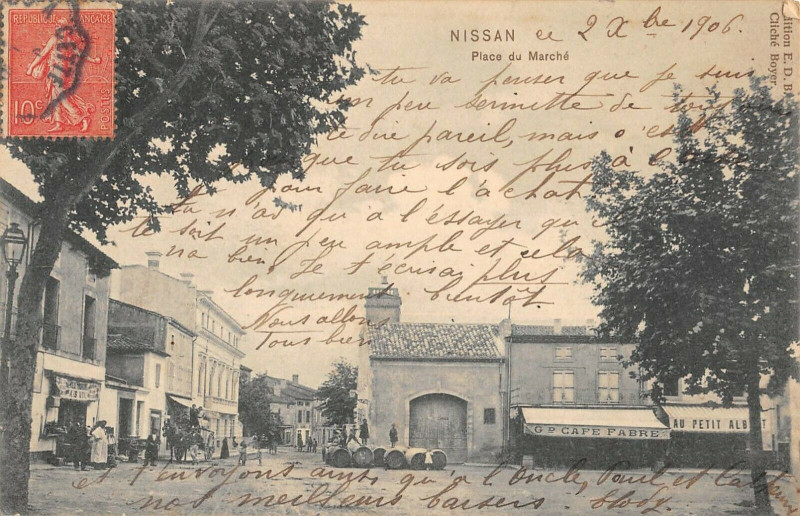 REPUBLIQUE FRANÇAISE
10c
POSTES
NISSAN ce 2 Xbre 1906.
Place du Marché
Edition E. D. B.
Cliché Boyer.
tu va penser que je suis
un peu
te dire pareil, mais c'est
que tu sois plus à
pour faire l'achat
tu n'as qu'à l'essayer
te soit un peu ample et cela
na bien. Je t'écrirai plus
longuement bientôt.
Nous allons
tous bien
Gd CAFE FABRE
AU PETIT ALB
et t'envoyons ainsi qu'à l'Oncle, Paul et
nos meilleurs baisers.